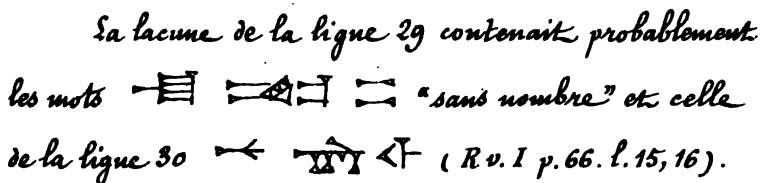 La lacune de la ligne 29 contenait probablement
les mots "sans nombre" et celle
de la ligne 30 (R v. I p. 66. l. 15, 16).